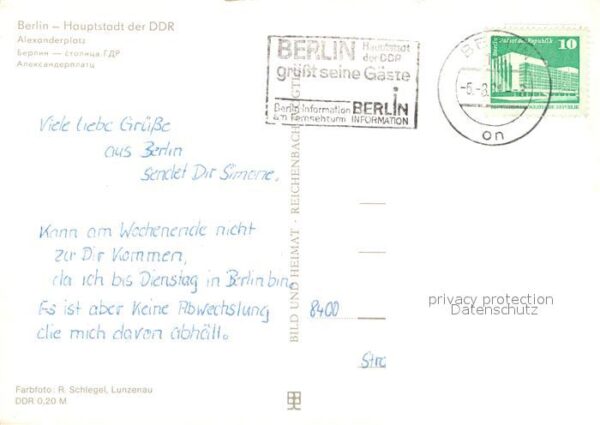 Berlin – Hauptstadt der DDR
Alexanderplatz
Берлин — столица ГДР
Александерплатц
BERLIN Hauptstadt
der DDR
grüßt seine Gäste
Berlin Information
am Fernsehturm
BERLIN
INFORMATION
10
on
Viele liebe Grüße
aus Berlin
sendet Dir Simone.
Kann am Wochenende nicht
zu Dir kommen,
da ich bis Dienstag in Berlin bin.
Es ist aber keine Abwechslung
die mich davon abhäll.
BILD UND HEIMAT · REICHENBACH
8400
Str
privacy protection
Datenschutz
Farbfoto: R. Schlegel, Lunzenau
DDR 0,20 M